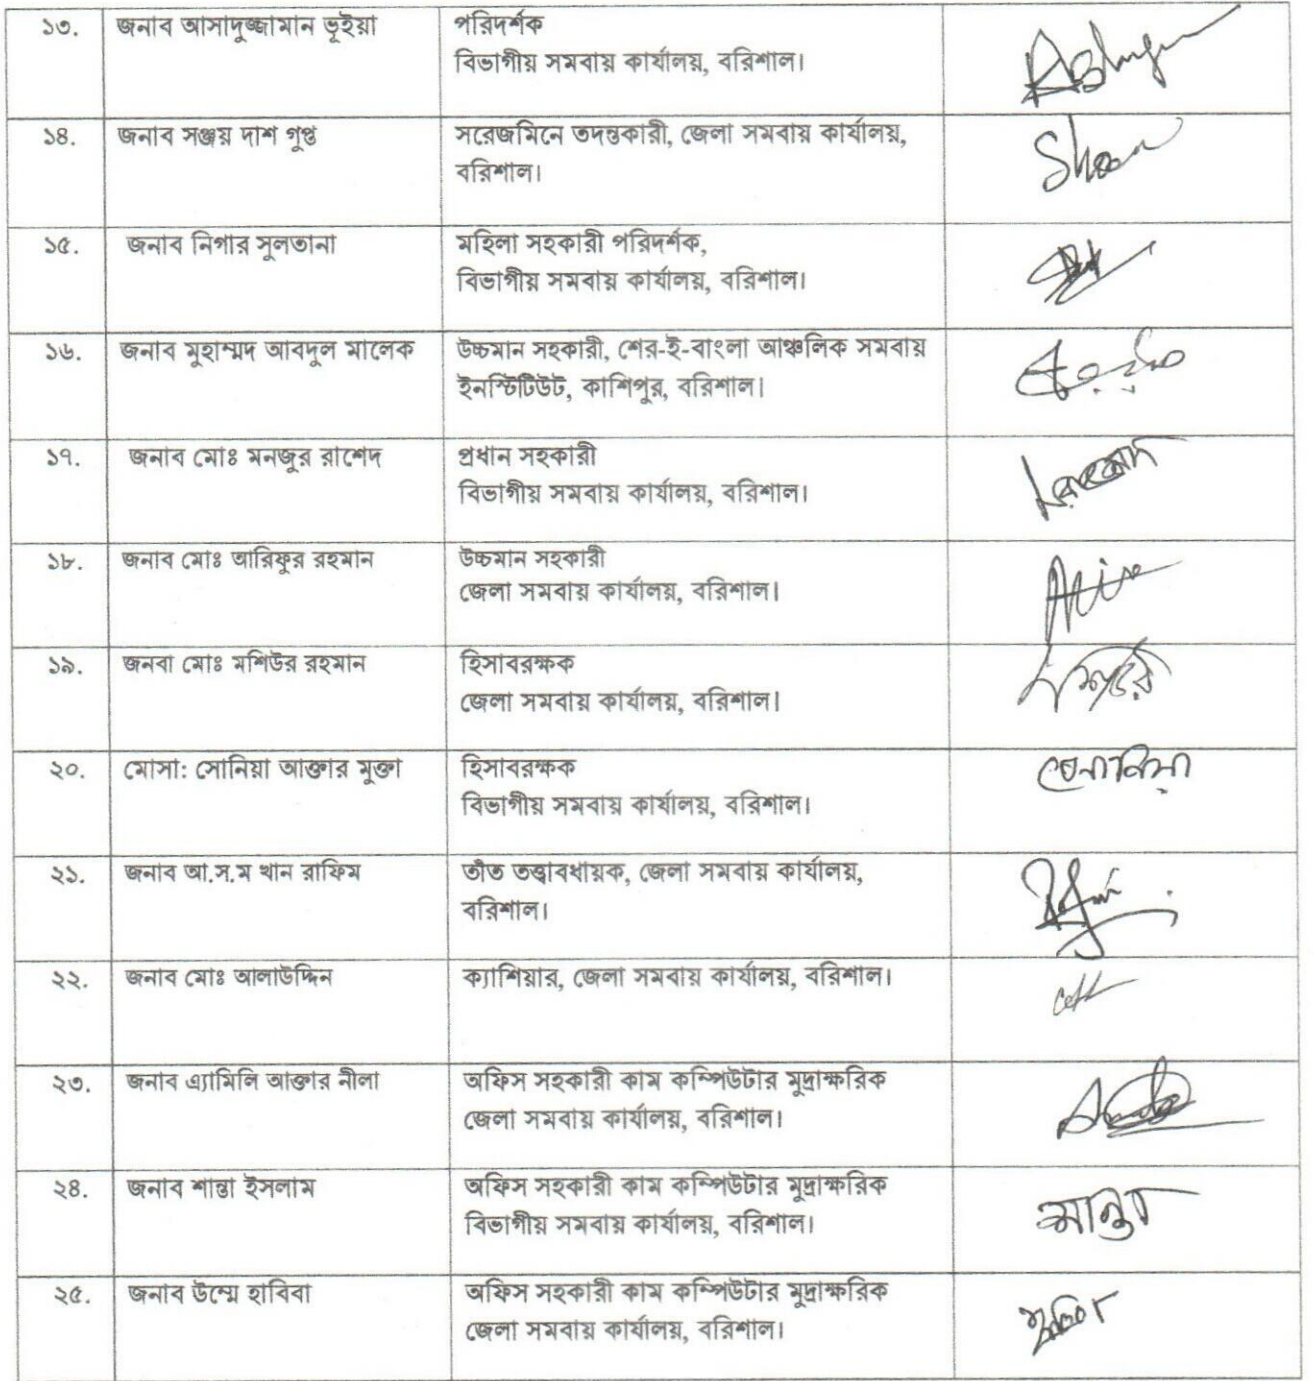 ১৩. জনাব আসাদুজ্জামান ভূইয়া পরিদর্শক
বিভাগীয় সমবায় কার্যালয়, বরিশাল।
১৪. জনাব সঞ্জয় দাশ গুপ্ত সরেজমিনে তদন্তকারী, জেলা সমবায় কার্যালয়,
বরিশাল।
১৫. জনাব নিগার সুলতানা মহিলা সহকারী পরিদর্শক,
বিভাগীয় সমবায় কার্যালয়, বরিশাল।
১৬. জনাব মুহাম্মদ আবদুল মালেক উচ্চমান সহকারী, শের-ই-বাংলা আঞ্চলিক সমবায়
ইনস্টিটিউট, কাশিপুর, বরিশাল।
১৭. জনাব মোঃ মনজুর রাশেদ প্রধান সহকারী
বিভাগীয় সমবায় কার্যালয়, বরিশাল।
১৮. জনাব মোঃ আরিফুর রহমান উচ্চমান সহকারী
জেলা সমবায় কার্যালয়, বরিশাল।
১৯. জনবা মোঃ মশিউর রহমান হিসাবরক্ষক
জেলা সমবায় কার্যালয়, বরিশাল।
২০. মোসা: সোনিয়া আক্তার মুক্তা হিসাবরক্ষক সোনিয়া
বিভাগীয় সমবায় কার্যালয়, বরিশাল।
২১. জনাব আ.স.ম খান রাফিম তাঁত তত্ত্বাবধায়ক, জেলা সমবায় কার্যালয়,
বরিশাল।
২২. জনাব মোঃ আলাউদ্দিন ক্যাশিয়ার, জেলা সমবায় কার্যালয়, বরিশাল।
২৩. জনাব এ্যামিলি আক্তার নীলা অফিস সহকারী কাম কম্পিউটার মুদ্রাক্ষরিক
জেলা সমবায় কার্যালয়, বরিশাল।
২৪. জনাব শান্তা ইসলাম অফিস সহকারী কাম কম্পিউটার মুদ্রাক্ষরিক শান্তা
বিভাগীয় সমবায় কার্যালয়, বরিশাল।
২৫. জনাব উম্মে হাবিবা অফিস সহকারী কাম কম্পিউটার মুদ্রাক্ষরিক
জেলা সমবায় কার্যালয়, বরিশাল।